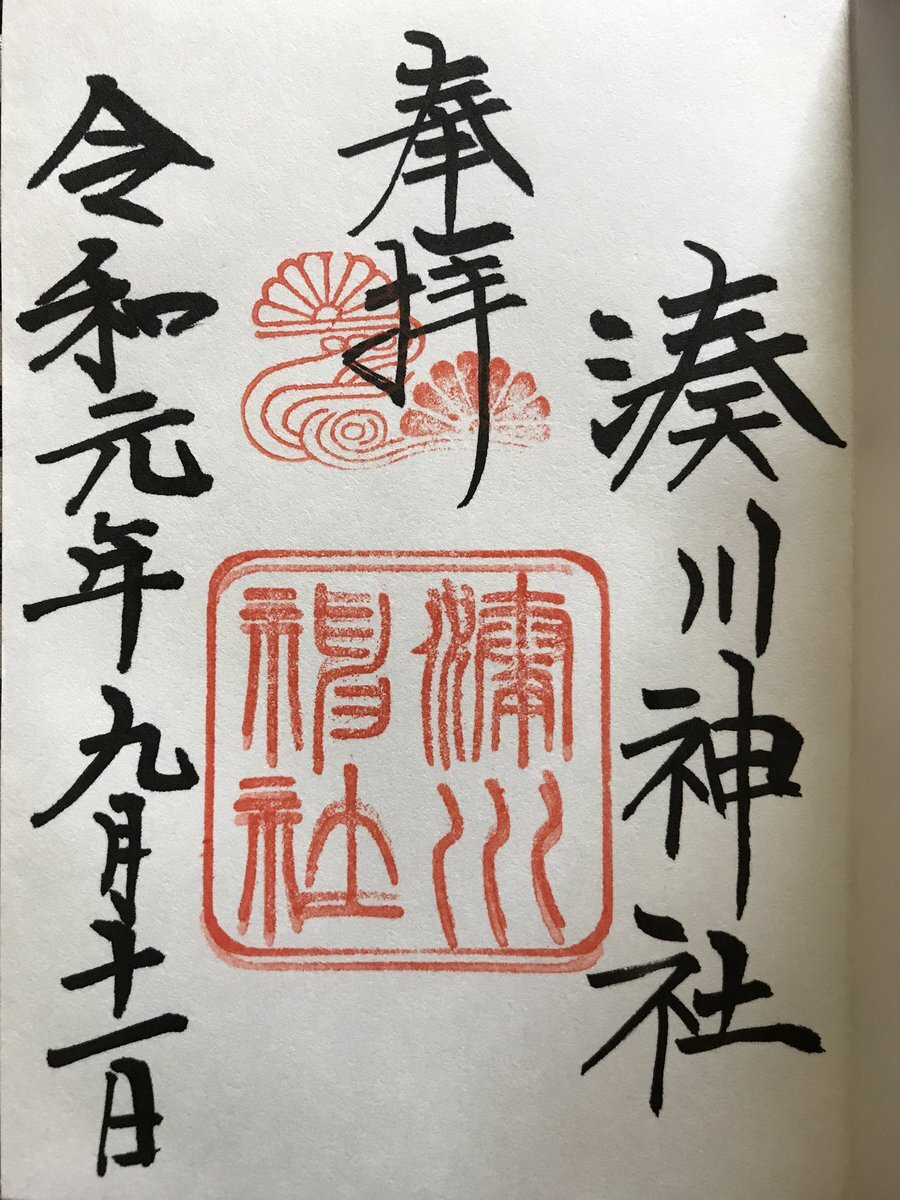 湊川神社
奉拝
湊川
神社
令和元年九月十一日